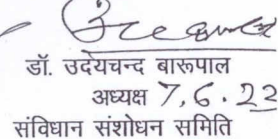 डॉ. उदेयचन्द बारूपाल
अध्यक्ष 7.6.22
संविधान संशोधन समिति